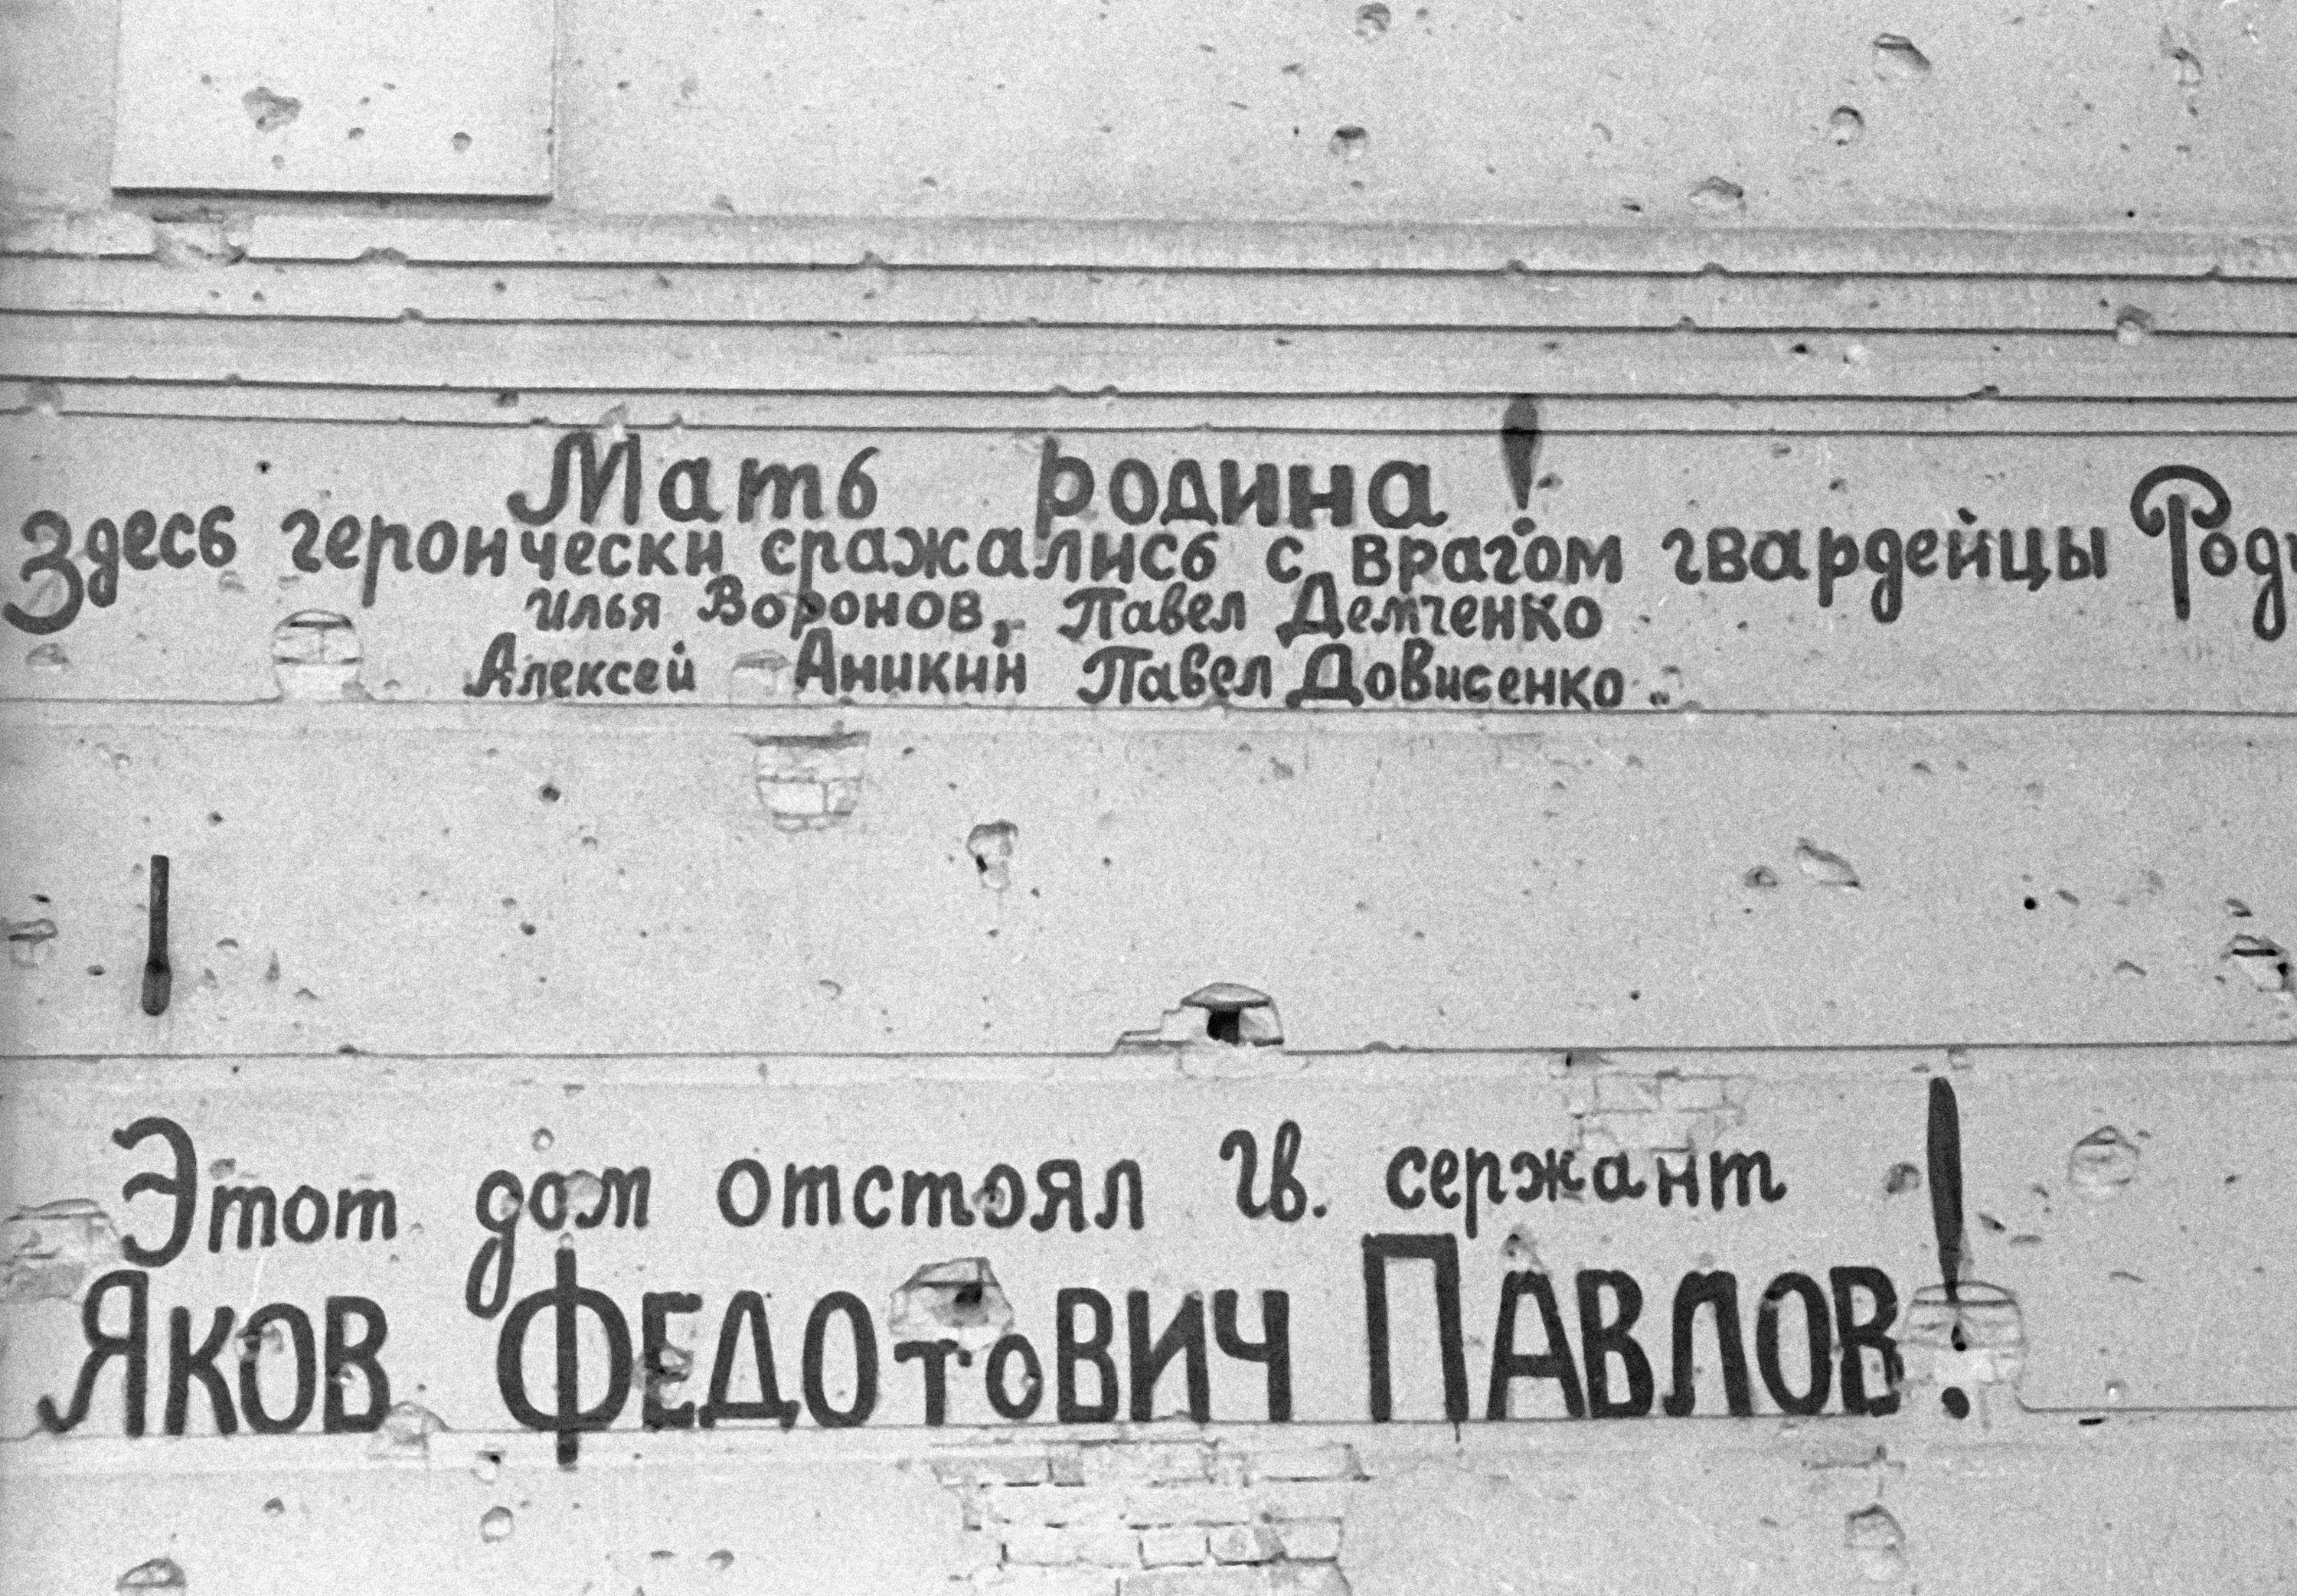 Мать родина!
Здесь героически сражались с врагом гвардейцы
Илья Воронов, Павел Демченко
Алексей Аникин Павел Довисенко..
Этот дом отстоял Гв. сержант
Яков ФЕДОтоВИЧ ПАВЛОВ!